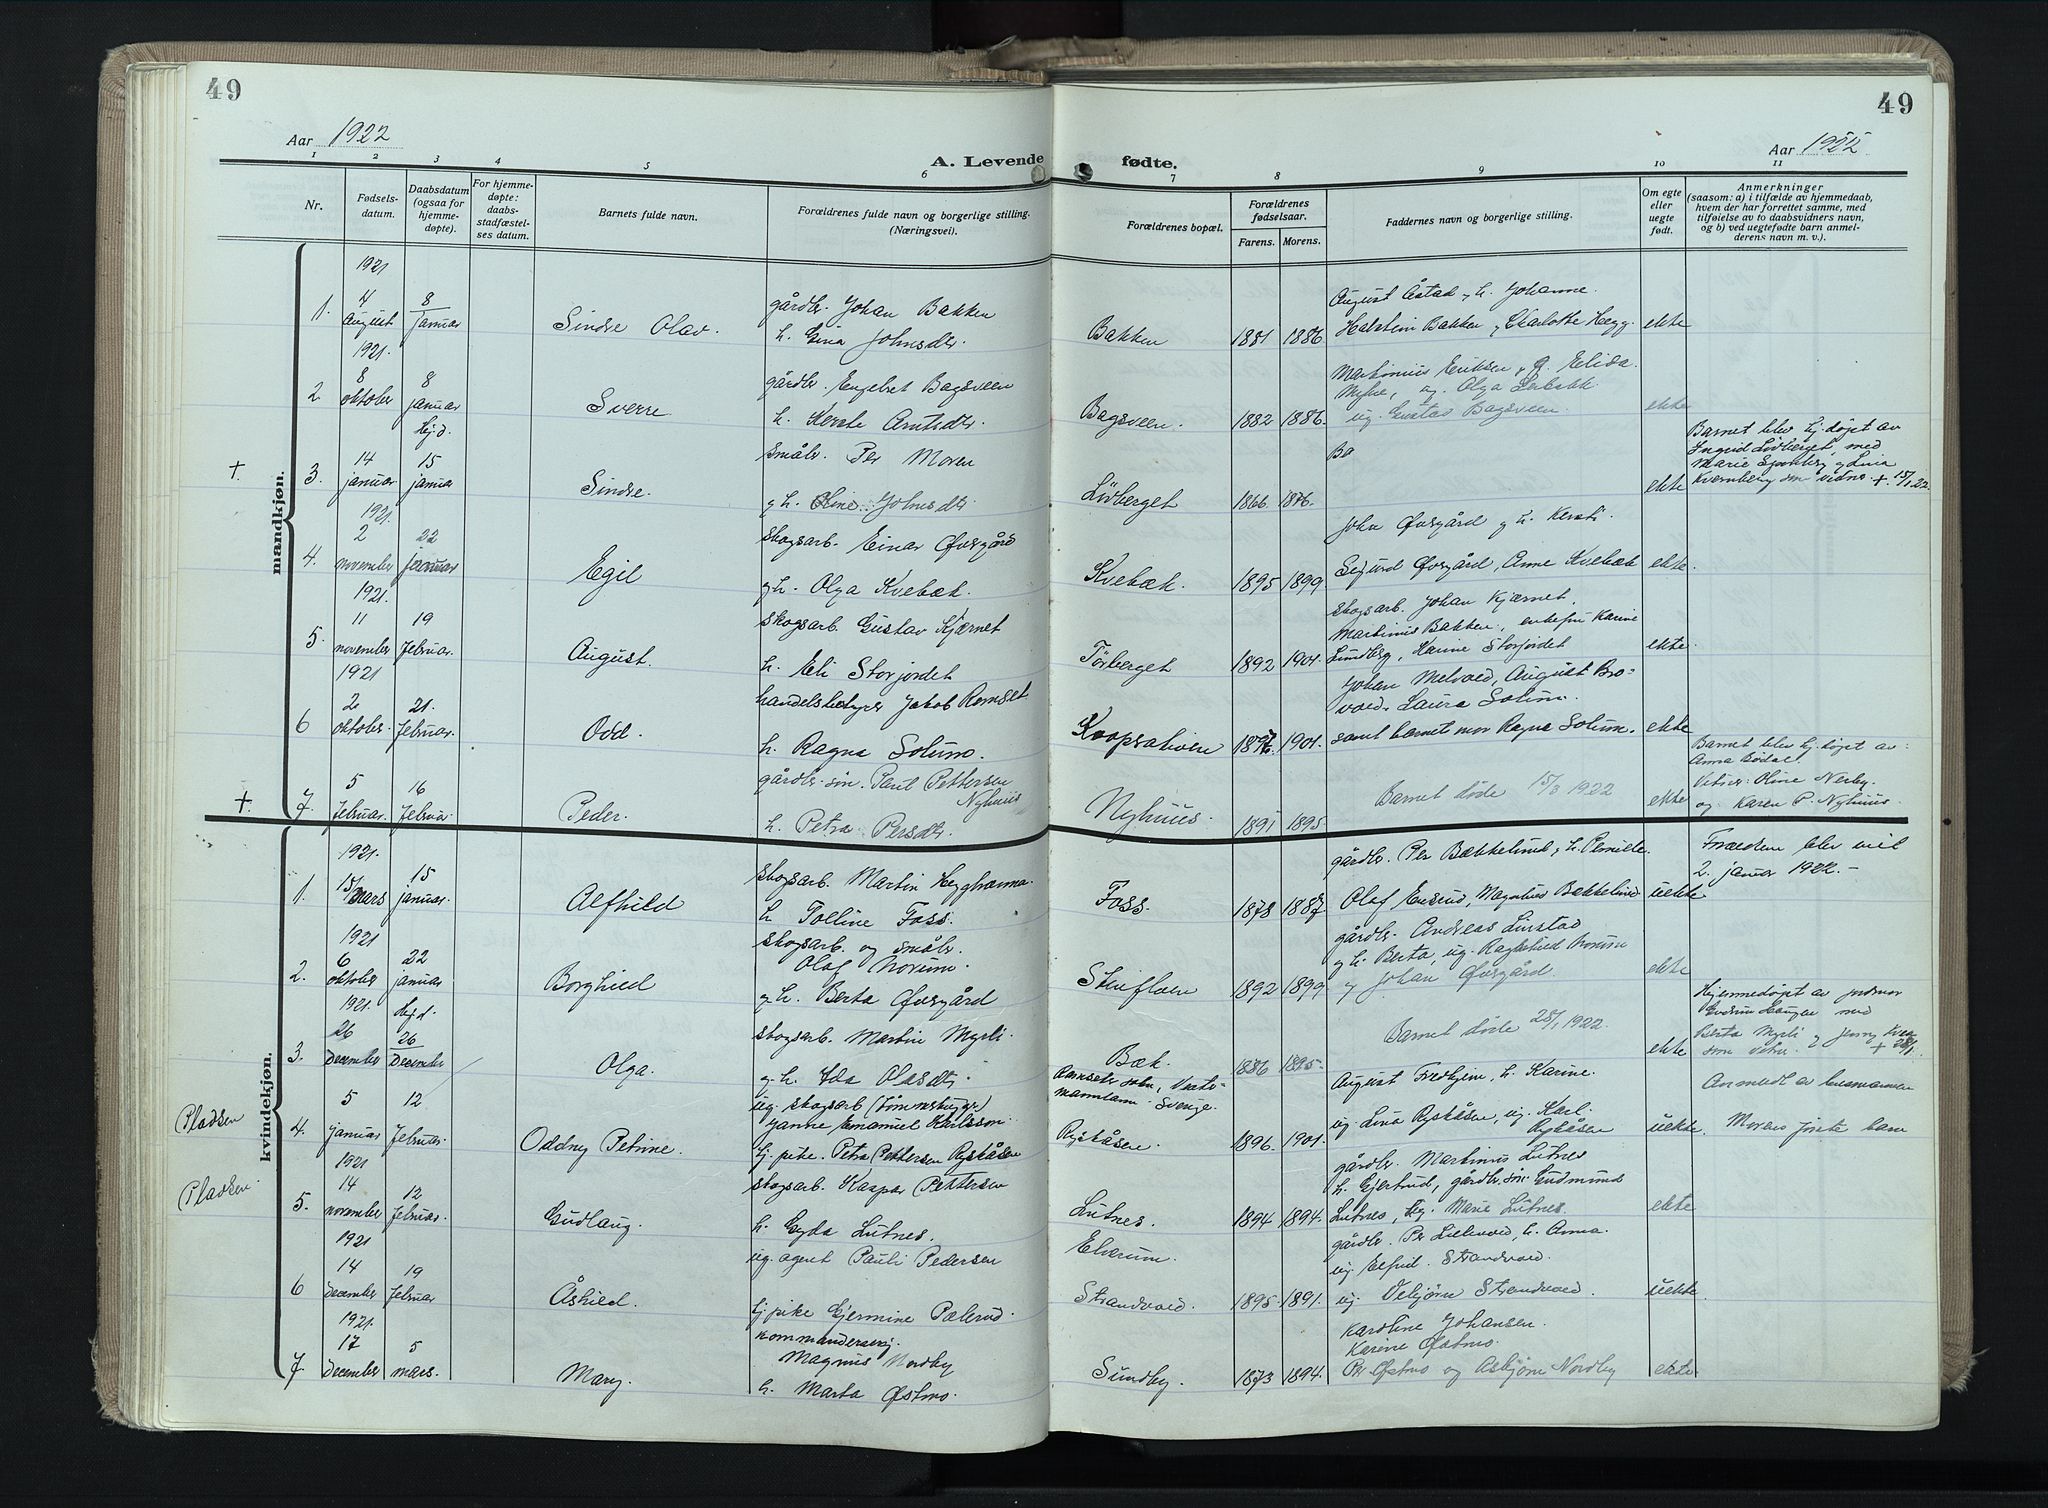 49
49
Aar 1922
Aar 1922
A. Levende fødte.
1 2 3 4 5 6 7 8 9 10 11
Nr.
Fødsels-
datum.
Daabsdatum
(ogsaa for
hjemme-
døpte).
For hjemme-
døpte:
daabs-
stadfæstel-
ses datum.
Barnets fulde navn.
Forældrenes fulde navn og borgerlige stilling.
(Næringsvei).
Forældrenes bopæl.
Forældrenes
fødselsaar.
Farens. Morens.
Faddernes navn og borgerlige stilling.
Om egte
eller
uegte
født.
Anmerkninger
(saasom: a) i tilfælde av hjemmedaab,
hvem der har forrettet samme, med
tilføielse av to daabsvidners navn,
og b) ved uegtefødte barn anmel-
derens navn m. v.).
mandkjøn.
1921
1. 4 August 8 januar Sindre Olav.
gårdbr. Johan Bakken
h. Gina Johnsdtr.
Bakken 1881 1886
August Åstad og h. Johanne.
Halstein Bakken, Charlotte Hegg. ekte
1921.
2 8 oktober 8 januar Sverre
gårdbr. Engebret Bagsveen
h. Kerste Arntsdtr.
Bagsveen. 1882 1886.
Martinius Eriksen, g. Elida
Myhre, ug. Olga
ug. Gustav Bagsveen. ekte
Hj.d.
+ 3 14 januar 15 januar Sindre.
småbr. Per Moren
g h. Oline Johnsdtr
Lövberget 1866 1876.
Ba
ekte
Barnet blev hj. døpt av
Ingrid Lövberget, med
Marie og Lina
Kvernberg som vidner + 15/1.22.
1921.
4. 2 november 22 januar Egil
skogsarb. Einar Øvergård
g h. Olga Kvebæk
Kvebæk. 1895 1899
John Øvergård g h. Kersti.
Sigurd Øvergård, Anne Kvebæk ekte.
1921.
5. 11 november 19 februar. August.
skogsarb. Gustav Kjærnet
h. Eli Storjordet
Törberget 1892 1901.
skogsarb. Johan Kjærnet,
Martinius Bakken, enkefru Karine
Lundberg, Karine Storjordet ekte.
1921
6 2 oktober. 21. februar. Odd.
handelsbestyrer Jakob Romset
h. Ragna Solum.
Kooperativen 1901.
Johan Melvold, August Bro-
vold, Laura Solum.
samt barnet mor Ragna Solum. ekte
+. 7. 5 februar. 16 februar. Peder.
gårdbr. søn. Paul Pettersen
Nyhuus
h. Petra Persdtr.
Nyhuus. 1891 1895.
Barnet døde 15/3 1922
ekte
Barnet blev hj. døpt av
Anna Bødal.
Vitner: Oline Nerby.
og Karen P. Nyhuus.
kvindekjøn.
1921.
1. 15/ mars 15 januar. Alfhild
skogsarb. Martin Hegghamna.
h. Tolline Foss.
Foss. 1878 1887
gårdbr. Per Bækkelund, h. Pernille.
Olaf Enerud, Magnhild Bækkelund uekte
Foræld​rene blev viet
2. januar 1922.-
1921
2. 6 oktober 22 januar Borghild
skogsarb. og småbr.
Olaf Norum.
g h. Berta Øvergård
Stenfloen 1892 1899
gårdbr. Andreas Linstad
g h. Berta, ug. Ragnhild Norum
g Johan Øvergård. ekte
1921
hj.d.
3. 26 December 26 December Olga.
skogsarb. Martin Myrli.
g h. Ida Olasdtr.
Bæk 1886 1895.
Barnet døde 28/1 1922.
ekte
Hjemmedøpt av jordmor
Gudrun Haugen med
Berta Myrli og
som vitner. + 28/1.
Pladsen 4. 5 januar 12 februar. Oddny Petrine.
ug. skogsarb (Tømmerhugger)
Janne Emanuel Karlsson.
hj. pike. Petra Pettersen Ryskåsen
Sverige.
Ryskåsen. 1896. 1901.
August Fredheim, h. Karine.
ug. Lina Ryskåsen, ug. Karl
Ryskåsen uekte.
Anmeldt av barnemoren
Morens første barn
1921
Pladsen. 5. 14 november 12 februar. Gudlaug.
skogsarb. Kaspar Pettersen
h. Gyda Lutnes.
Lutnes. 1894 1894.
gårdbr. Martinius Lutnes
h. Gjertrud, gårdbr. søn Gudmund
Lutnes, ug. Marie Lutnes. ekte
1921
6 14 December 19 februar Åshild.
ug. agent Pauli Pedersen
hj. pike Gjermine Pålerud.
Elverum.
Strandvold. 1895. 1891.
gårdbr. Per Lillevold, h. Anna.
ug. Elfrid. Strandvold.
ug. Vebjørn Strandvold. uekte.
1921.
7. 17 December 5 mars. Mary.
kommandersersj.
Magnus Nordby
h. Marta Østmo.
Sundby. 1873 1894.
Karoline Johansen.
Karine Østmo.
Per Østmo og Asbjørn Nordby ekte